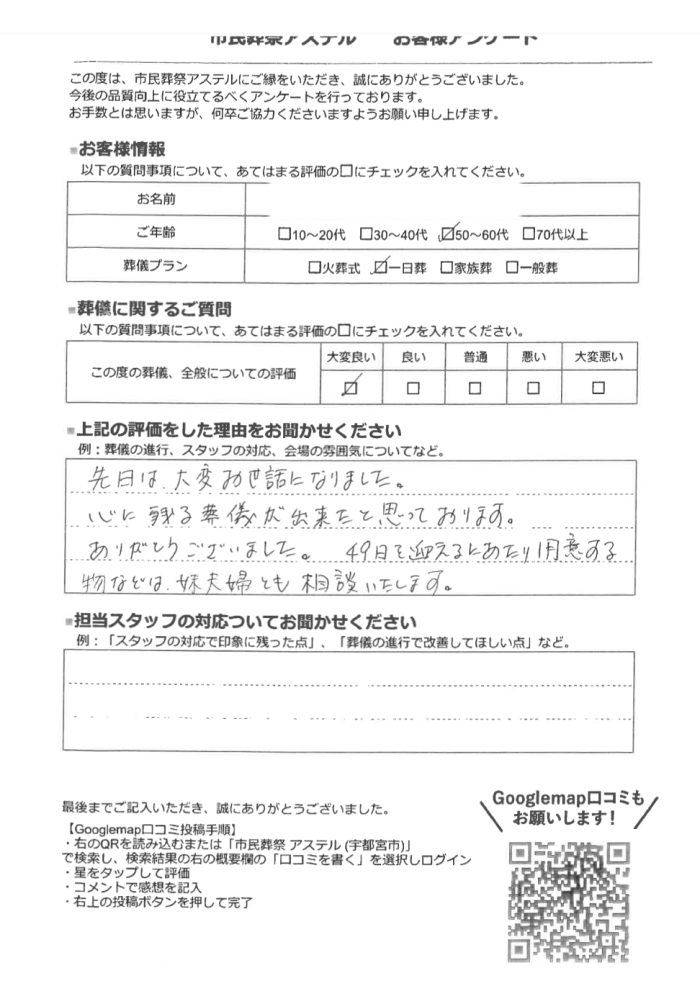 市民葬祭アステル　お客様アンケート
この度は、市民葬祭アステルにご縁をいただき、誠にありがとうございました。
今後の品質向上に役立てるべくアンケートを行っております。
お手数とは思いますが、何卒ご協力くださいますようお願い申し上げます。
■お客様情報
以下の質問事項について、あてはまる評価の□にチェックを入れてください。
お名前
ご年齢 □10～20代 □30～40代 ☑50～60代 □70代以上
葬儀プラン □火葬式 ☑一日葬 □家族葬 □一般葬
■葬儀に関するご質問
以下の質問事項について、あてはまる評価の□にチェックを入れてください。
大変良い 良い 普通 悪い 大変悪い
この度の葬儀、全般についての評価 ☑ □ □ □ □
■上記の評価をした理由をお聞かせください
例：葬儀の進行、スタッフの対応、会場の雰囲気についてなど。
先日は、大変お世話になりました。
心に残る葬儀が出来たと思っております。
ありがとうございました。 49日を迎えるにあたり用意する
物などは、妹夫婦とも相談いたします。
■担当スタッフの対応ついてお聞かせください
例：「スタッフの対応で印象に残った点」、「葬儀の進行で改善してほしい点」など。
最後までご記入いただき、誠にありがとうございました。
【Googlemap口コミ投稿手順】
・右のQRを読み込むまたは「市民葬祭 アステル (宇都宮市)」
で検索し、検索結果の右の概要欄の「口コミを書く」を選択しログイン
・星をタップして評価
・コメントで感想を記入
・右上の投稿ボタンを押して完了
Googlemap口コミも
お願いします！